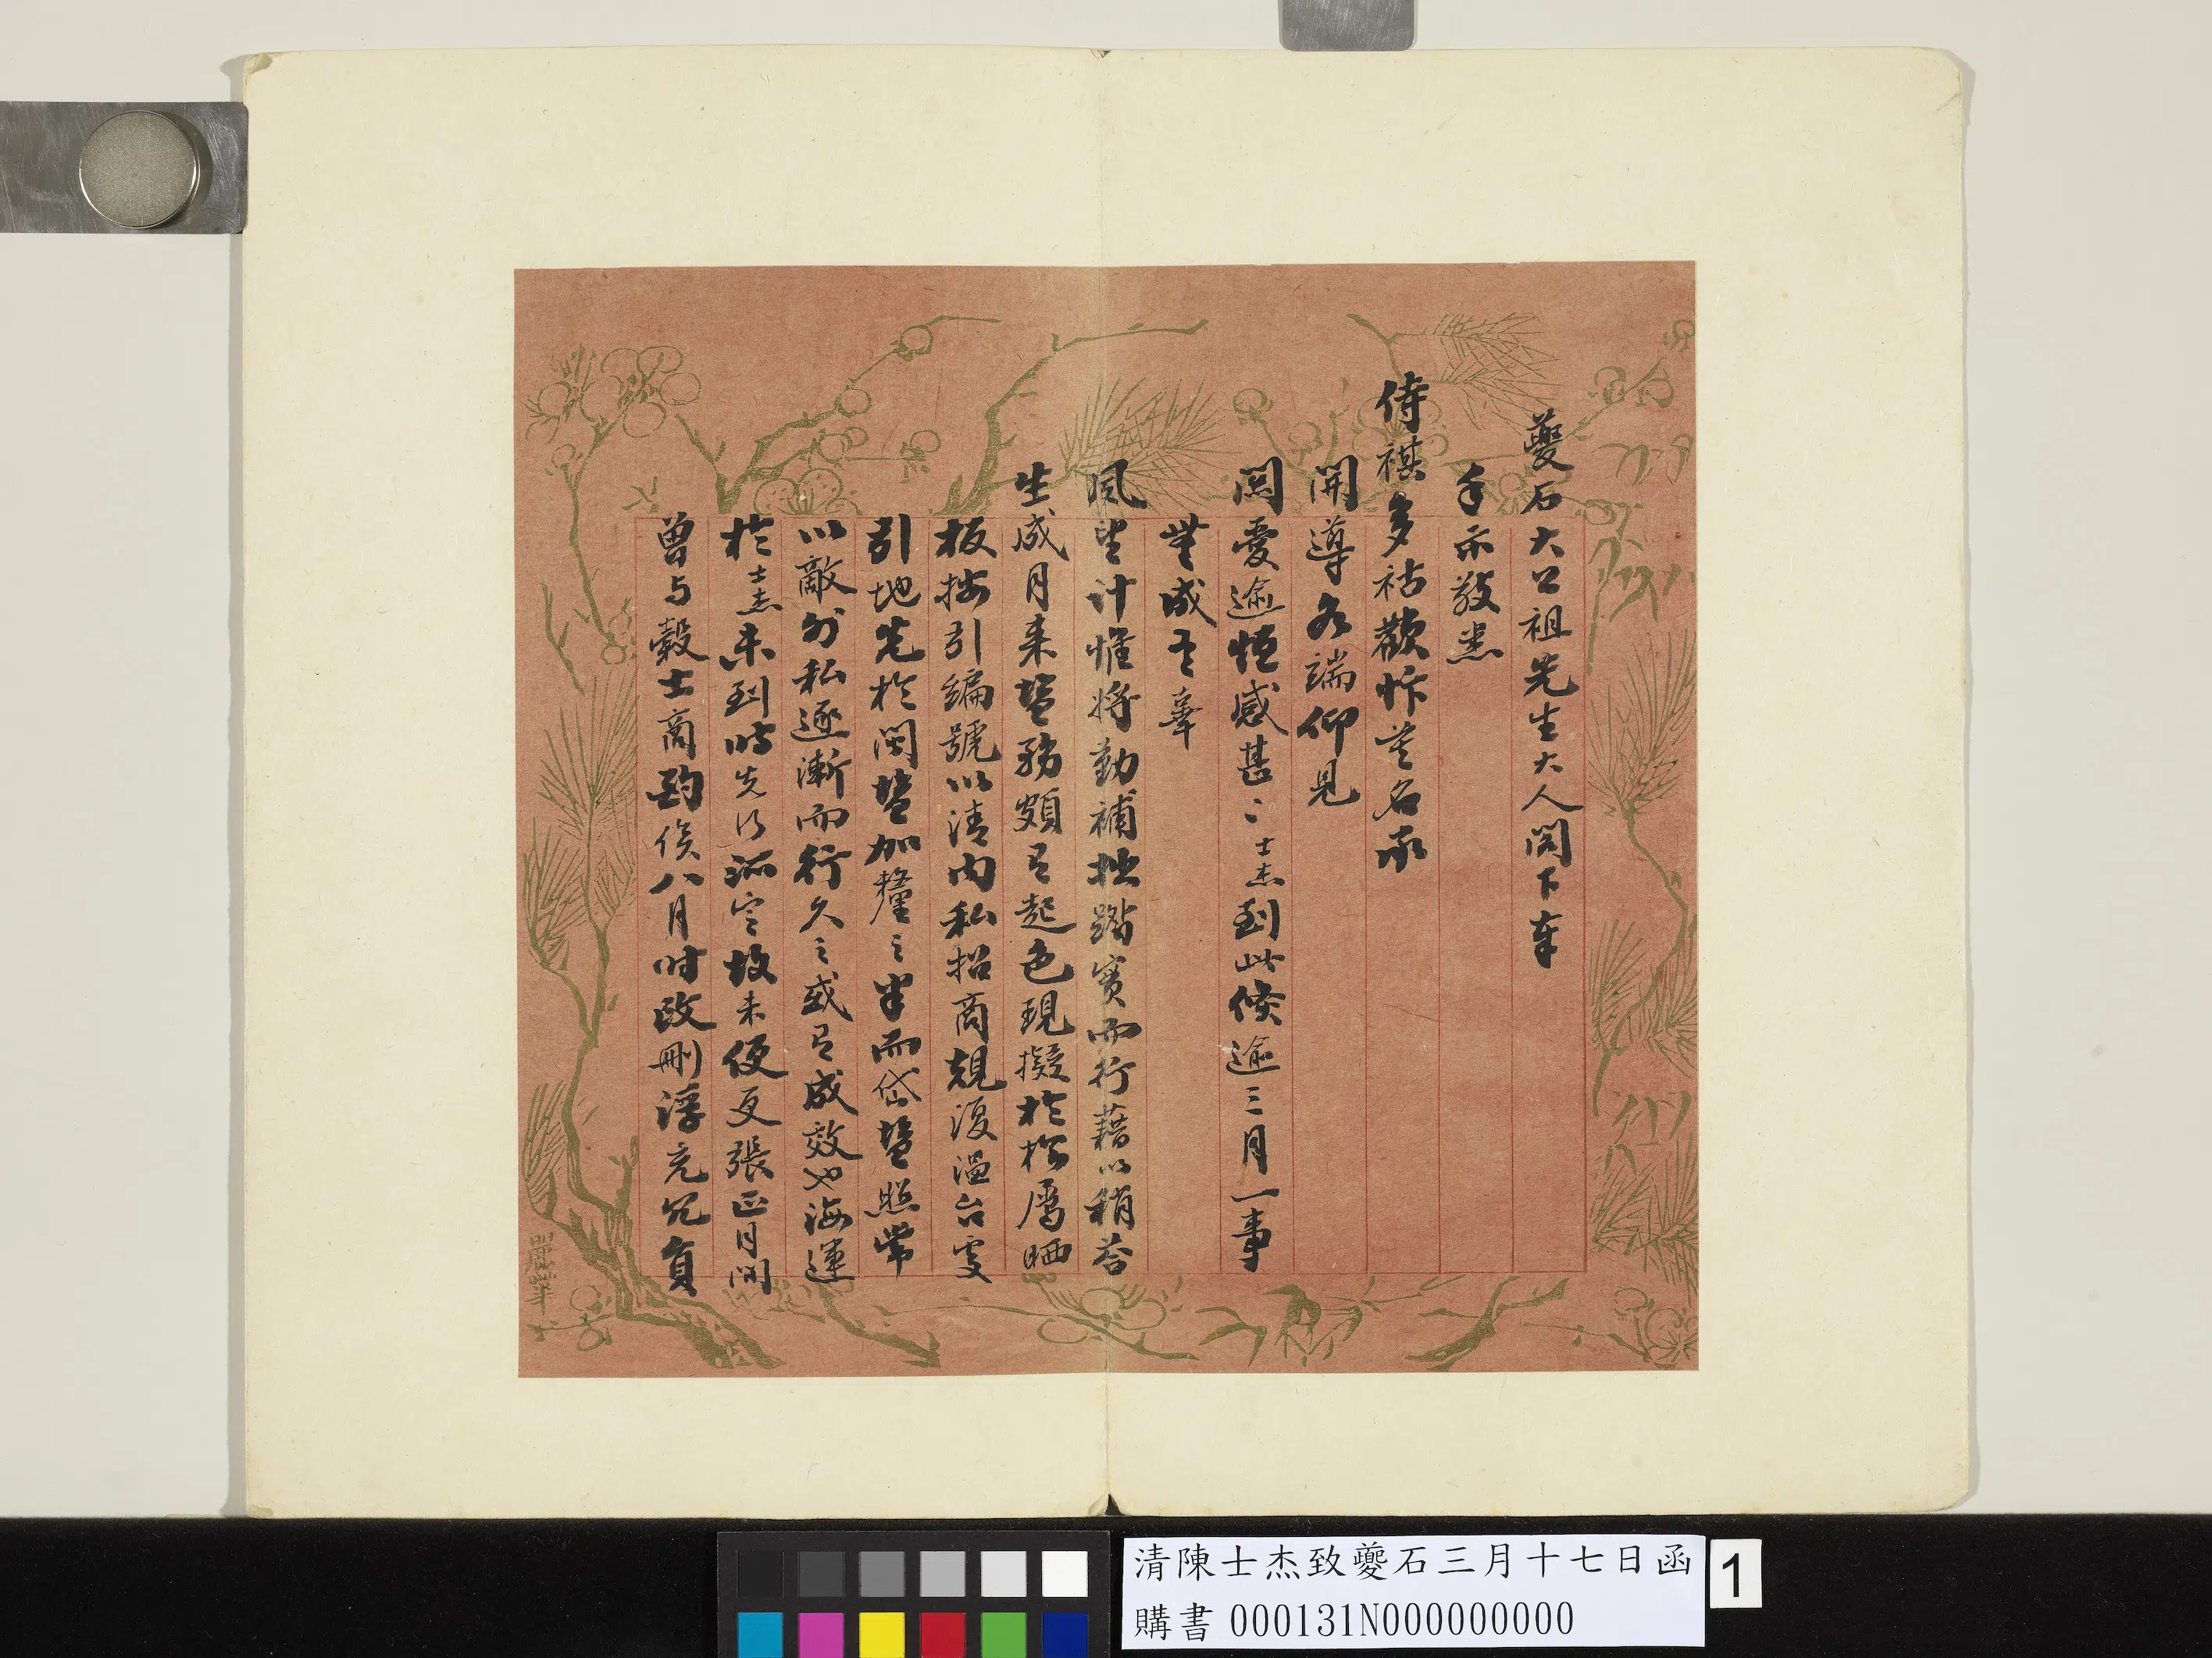 夔石大公祖先生大人閣下奉
手示敬悉
侍祺多祜歡忭莫名承
開導多端仰見
關愛逾恆感甚〻士杰到此倏逾三月一事
無成有辜
風望計惟將勤補拙踏實而行藉以稍答
生成月来鹽務頗有起色現擬於松屬晒
板按引編號以清内私招商規復温台處
引地先於閩鹽加釐之半而岱鹽照常
以敵外私逐漸而行久之或有成效也海運
於士杰未到時先行派定故未便更張正月间
曾与穀士商酌俟八月时改刪浮充冗員
清陳士杰致夔石三月十七日函
購書 000131N000000000
1